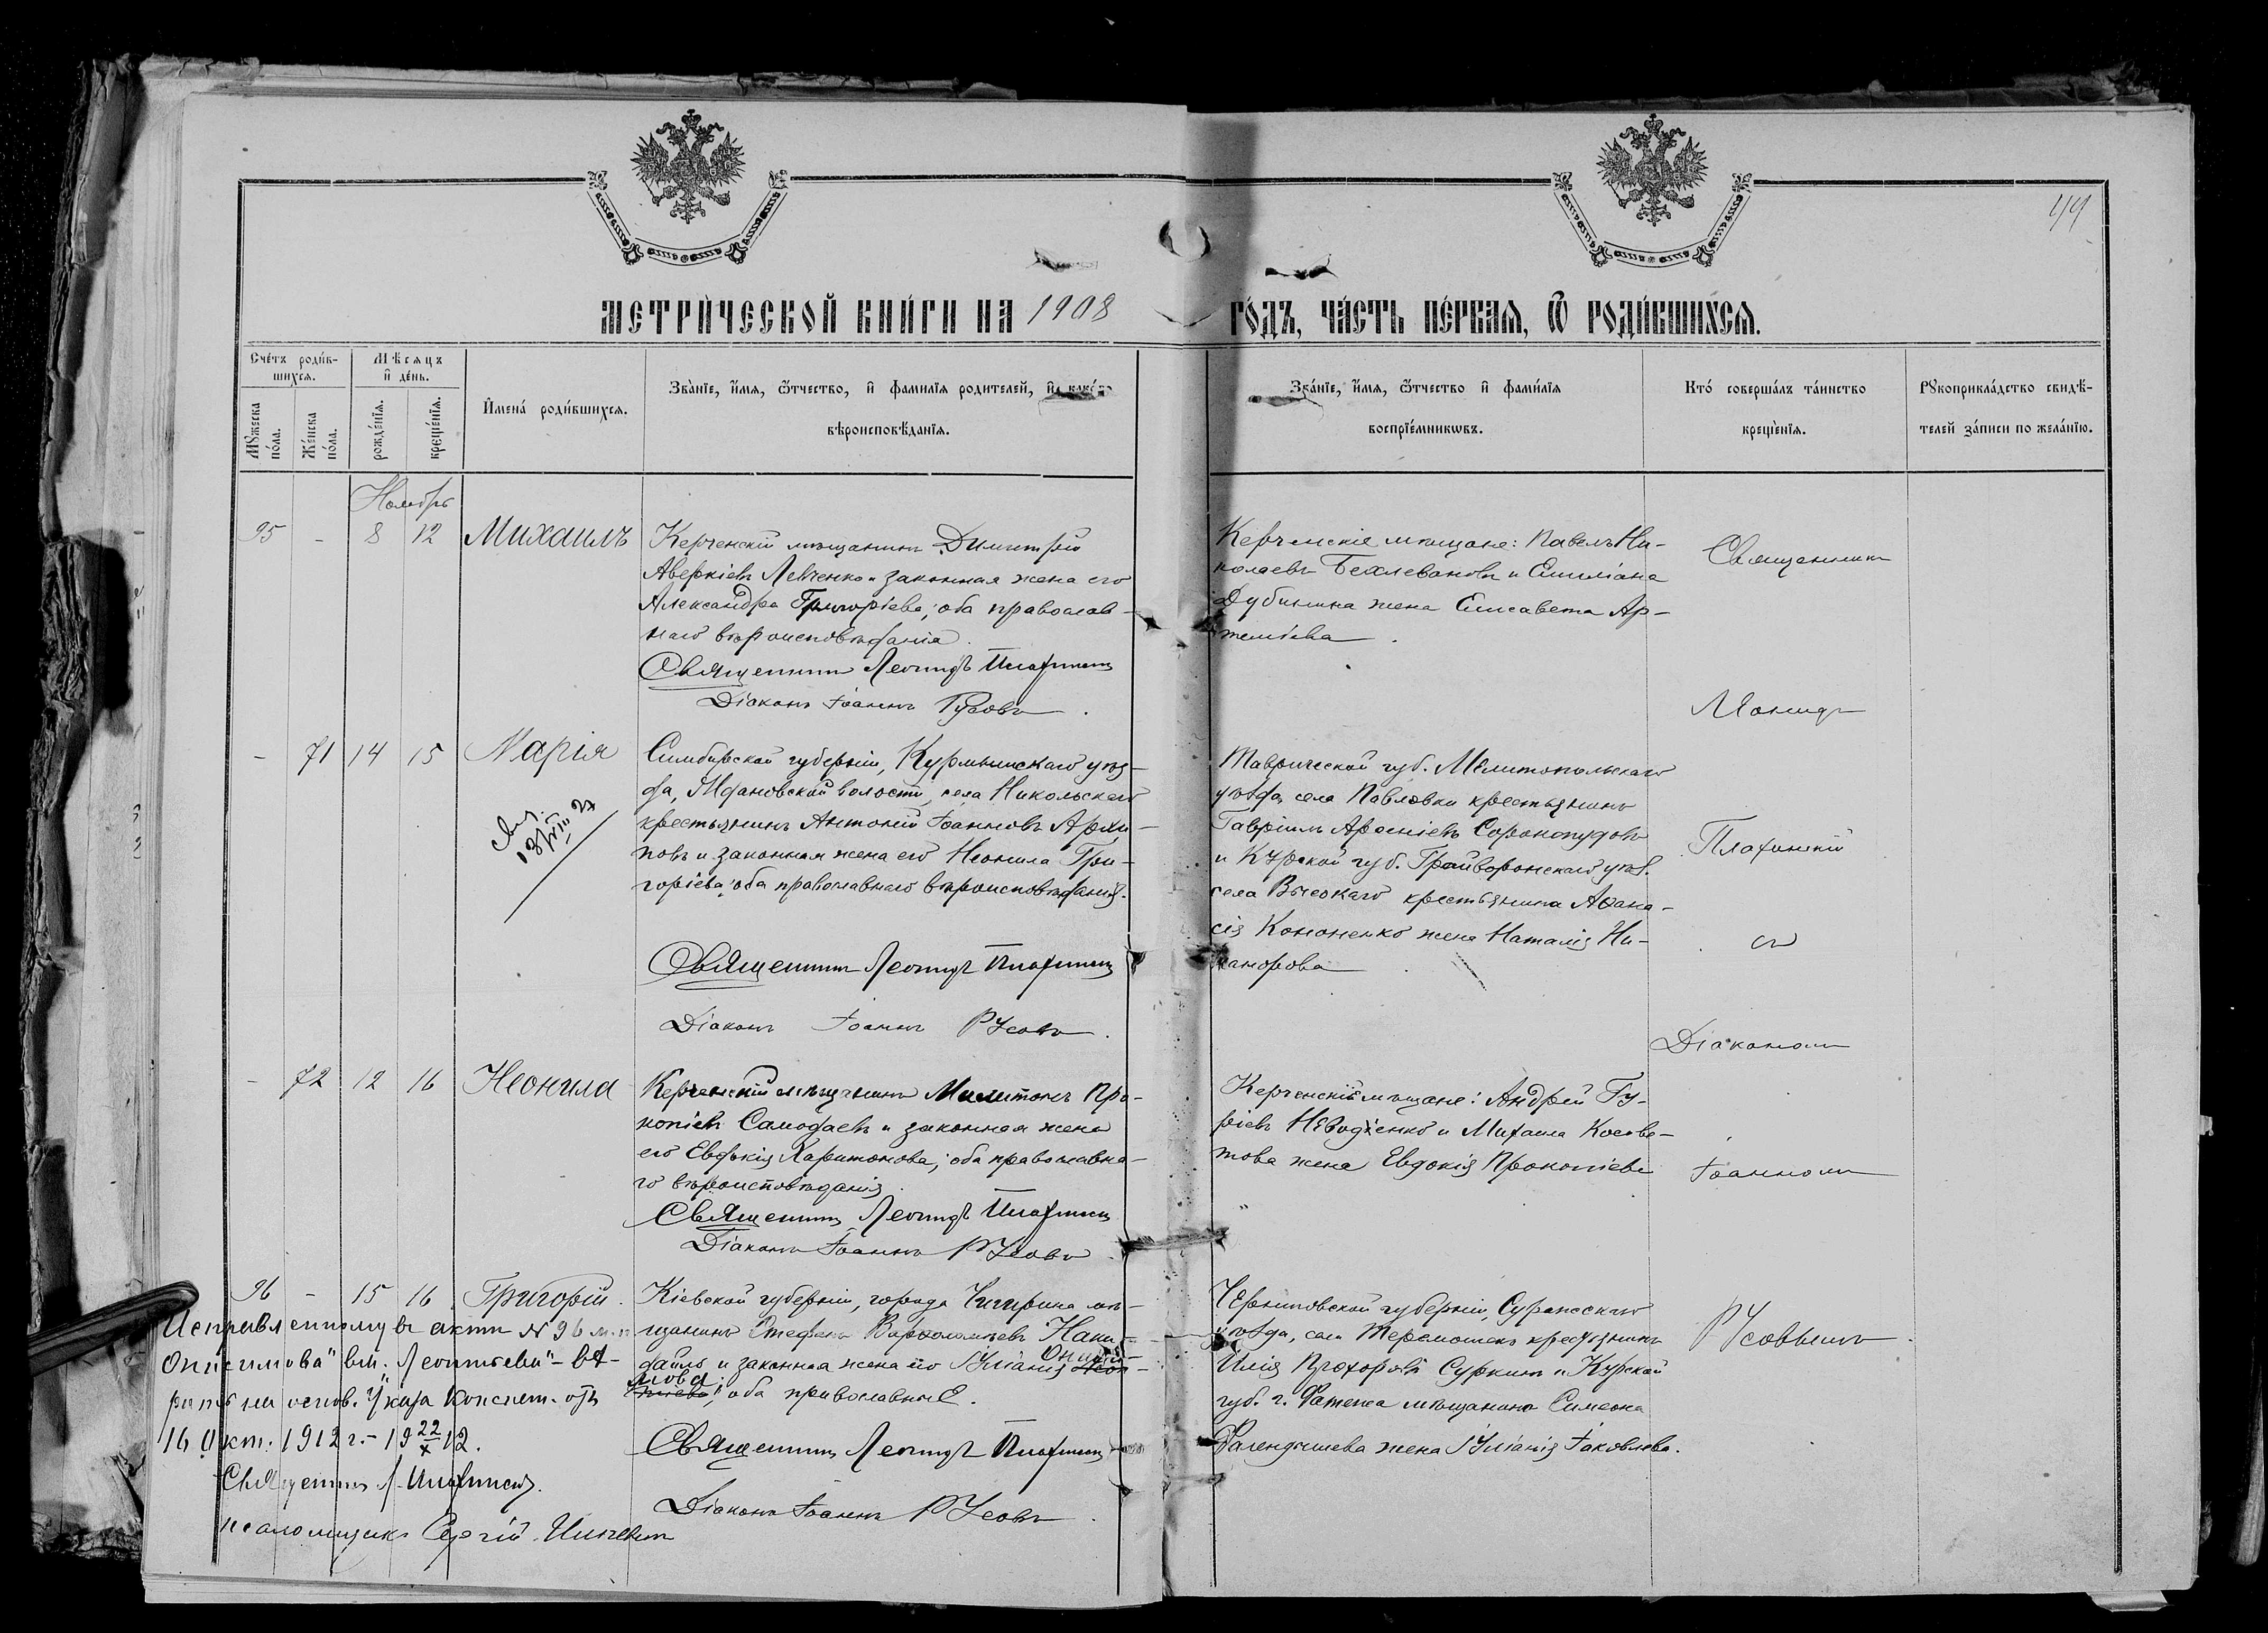 44
МЕТРИЧЕСКОЙ КНИГИ НА 1908 ГОДЪ, ЧАСТЬ ПЕРВАЯ, Ѿ РОДИВШИХСЯ.
Счетъ родив-
шихся.
Мѣсяцъ
и день.
Мужеска
пола.
Женска
пола.
рожденія.
крещенія.
Имена родившихся.
Званіе, имя, ѿтчество, и фамилія родителей, и какого
вѣроисповѣданія.
Званіе, имя, ѿтчество и фамилія
воспріемниковъ.
Кто совершалъ таинство
крещенія.
Рукоприкладство свидѣ-
телей записи по желанію.
Ноябрь
95 - 8 12 Михаилъ
Керченскій мѣщанинъ Димитрій
Аверкіевъ Левченко и законная жена его
Александра Григоріева; оба православ-
наго вѣроисповѣданія.
Священникъ Леонидъ
Діаконъ Іоаннъ Русовъ.
Керченскіе мѣщане: Павелъ Ни-
колаевъ Бехлевановъ и Емиліана
Дубинина жена Елисавета Ар-
теміева.
Священникъ
Леонидъ
- 71 14 15 Марія
Симбирской губерніи, Курмышскаго уѣз-
да, Ждановской волости, села Никольскаго
крестьянинъ Антоній Іоанновъ Архи-
повъ и законная жена его Неонила Гри-
горіева; оба православнаго вѣроисповѣданія.
Священникъ Леонидъ
Діаконъ Іоаннъ Русовъ.
Таврической губ. Мелитопольскаго
уѣзда, села Павловки крестьянинъ
Гавріилъ Арсеніевъ Соронопудовъ
и Курской губ. Грайворонскаго уѣз.
села Высокаго крестьянина Аѳана-
сія Кононенко жена Наталія Ни-
канорова
съ
Діакономъ
- 72 12 16 Неонила
Керченскій мѣщанинъ Милитонъ Про-
копіевъ Самодаевъ и законная жена
его Евдокія Харитонова; оба православна-
го вѣроисповѣданія.
Священникъ Леонидъ
Діаконъ Іоаннъ Русовъ
Керченскіе мѣщане: Андрей Гу-
ріевъ и Михаила Косове-
това жена Евдокія Прокопіева
Іоанномъ
96 - 15 16 Григорій.
Кіевской губерніи, города Чигирина мѣ-
щанинъ Стефанъ Варѳоломѣевъ
и законная жена его Іуліанія Ониси-
мова; оба православные.
Священникъ Леонидъ
Діаконъ Іоаннъ Русовъ.
Черниговской губерніи, Суражскаго
уѣзда, села крестьянинъ
Илія Прохоровъ Суркинъ и Курской
губ. г. Фатежа мѣщанина Симеона
жена Іуліанія Іаковлева.
Русовымъ.
Исправленному въ актѣ № 96 м. п.
„Онисимова" вм. „Леонтьева" - вѣ-
рить на основ. Указа Консист. отъ
16 Окт. 1912 г. - 19 22/X 12.
Священникъ Л.
псаломщикъ Сергій